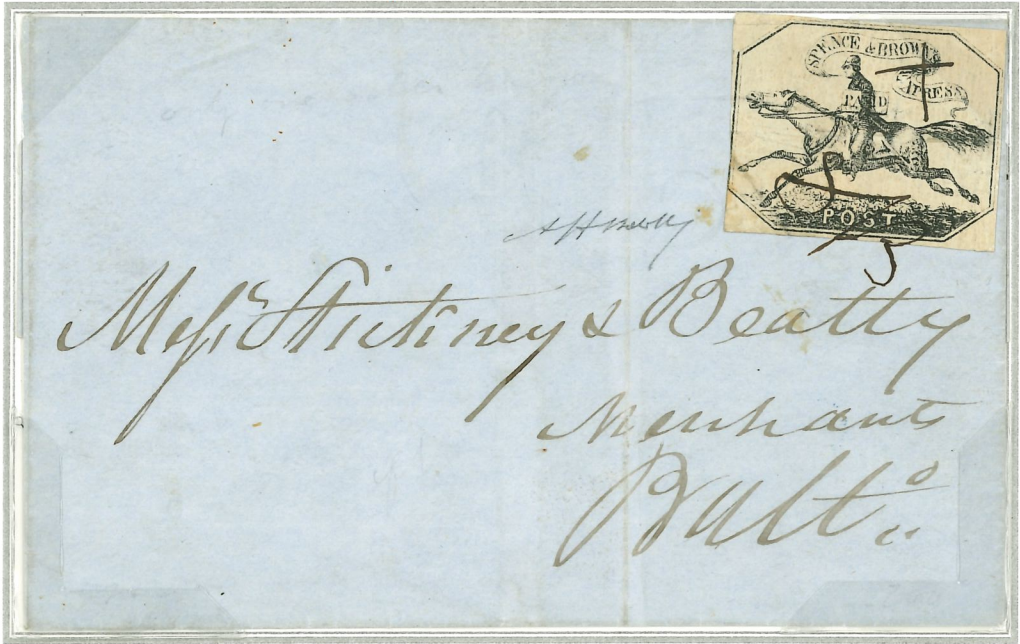 SPENCE & BROWN'S
EXPRESS
PAID
POST
Mess.rs Stickney & Beatty
Merchants
Balto